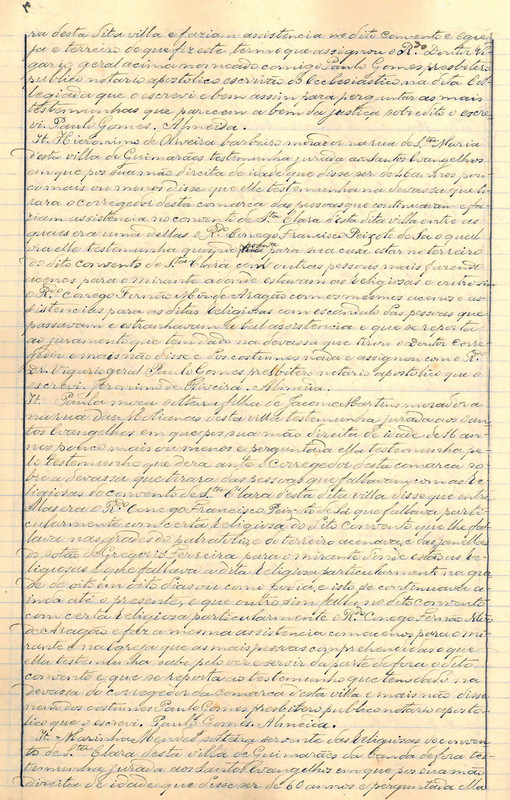 ra desta dita villa e faziam assistencia no dito convento e egre-
ja e terreiro de que fiz este termo que assignou o R.do Doutor Vi-
gario geral acima nomeado comigo Paulo Gomes presbitero
publico notario apostolico escrivão do Ecclesiastico na dita Col-
legiada que o escrevi e bem assim para perguntar as mais
testemunhas que parecem a bem da justiça sobredito o escre-
vi Paulo Gomes. Almeida.
It. Hieronimo de Oliveira barbeiro morador na rua de S.ta Maria
d'esta villa de Guimarães testemunha jurada aos Santos Evangelhos
em que pos sua mão direita de idade que disse ser de annos pou-
co mais ou menos disse que elle testemunha na devassa que ti-
rara o corregedor desta comarca das pessoas que continuavam e fa-
ziam assistencia no convento de S.ta Clara d'esta dita villa entre as
quaes era uma dellas o R.do Conego Francisco Peixoto de Sá o qual
via elle testemunha quando para sua casa estar no terreiro
do dito convento de S.ta Clara com outras pessoas mais fazendo
acenos para o mirante aonde estavam as religiosas e outrosim o
R.do Conego Fernão Mendes Aragão com os mesmos acenos e as-
sistencias para as ditas religiosas com escandalo das pessoas que
passavam e estranhavam a tal assistencia e que se reporta
ao juramento que tem dado na devassa que tirou o Doutor Corre-
gedor e mais não disse e dos costumes nada e assignou com o R.do
Dr. Vigario geral Paulo Gomes presbitero notario apostolico que o
escrevi Jeronimo de Oliveira. Almeida.
It. Paula moça solteira filha de Jacome Martins moradora
na rua das desta villa testemunha jurada aos San-
tos Evangelhos em que pos sua mão direita de idade de 16 an-
nos pouco mais ou menos e perguntada ella testemunha pe-
lo testemunho que dera ante o Corregedor desta comarca so-
bre a devassa que tirara das pessoas que fallavam com as Re-
ligiosas do convento de S.ta Clara desta dita villa disse que entre
ellas era o R.do Conego Francisco Peixoto de Sá que fallava parti-
cularmente com certa Religiosa do dito convento que lhe fal-
lava nas grades do palratorio e do terreiro acenava, e das janellas
do sotão de Gregorio Ferreira para o mirante donde estão as Re-
ligiosas e que fallava a dita Religiosa particularmente na gra-
de de oito em oito dias ou como podia, e isto se continuava a-
inda até o presente, e que outrosim falla no dito convento
com certa Religiosa particularmente o R.do Conego Fernão Men-
des Aragão e faz a mesma assistencia com acenos para o mi-
rante e na Igreja que as mais pessoas comprehendidas o que
ella testemunha sabe pelo ver e servir da parte de fora o dito
convento e que se reporta ao testemunho que tem dado na
devassa do corregedor da comarca desta villa e mais não disse
nem dos costumes Paulo Gomes presbitero publico notario aposto-
lico que o escrevi. Paulo Gomes. Almeida.
It. Marinha Mendes solteira servente das Religiosas do conven-
to de S.ta Clara desta villa de Guimarães da banda de fora tes-
temunha jurada aos Santos Evangelhos em que pos sua mão
direita de idade que disse ser de 60 annos e perguntada ella